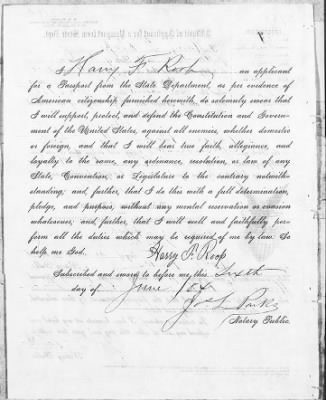 I Harry F. Roop an applicant
for a Passport from the State Department, as per evidence of
American citizenship furnished herewith, do solemnly swear that
I will support, protect, and defend the Constitution and Govern-
ment of the United States, against all enemies, whether domestic
or foreign, and that I will bear true faith, allegiance, and
loyalty to the same, any ordinance, resolution, or law of any
State, Convention, or Legislature to the contrary notwith-
standing; and, further, that I do this with a full determination,
pledge, and purpose, without any mental reservation or evasion
whatsoever; and, further, that I will well and faithfully per-
form all the duties which may be required of me by law. So
help me God.
Harry F. Roop
Subscribed and sworn to before me, this Sixth
day of June
Parks
Notary Public.